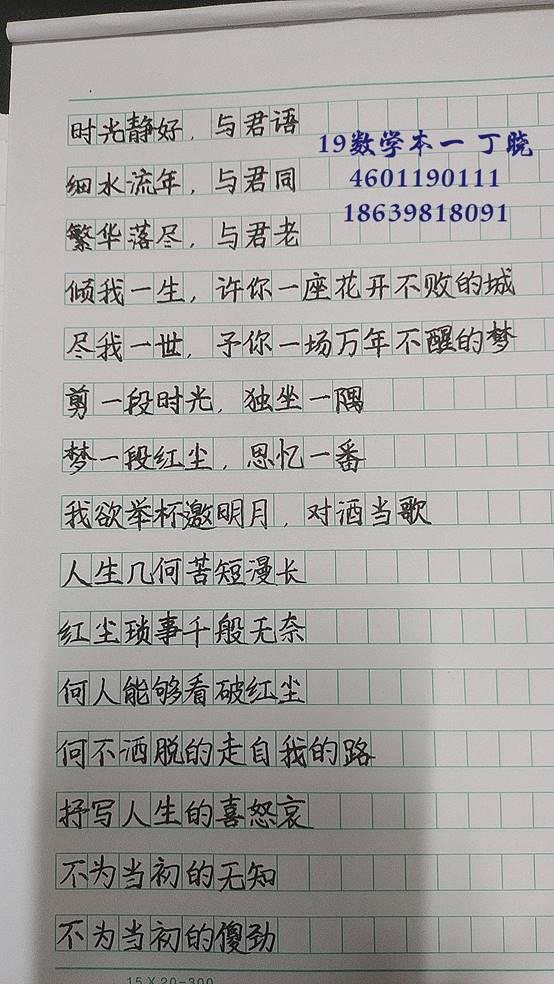 时光静好，与君语
19数学本一 丁晓
细水流年，与君同
4601190111
18639818091
繁华落尽，与君老
倾我一生，许你一座花开不败的城
尽我一世，予你一场万年不醒的梦
剪一段时光，独坐一隅
梦一段红尘，思忆一番
我欲举杯邀明月，对酒当歌
人生几何苦短漫长
红尘琐事千般无奈
何人能够看破红尘
何不洒脱的走自我的路
抒写人生的喜怒哀
不为当初的无知
不为当初的傻劲
15×20=300